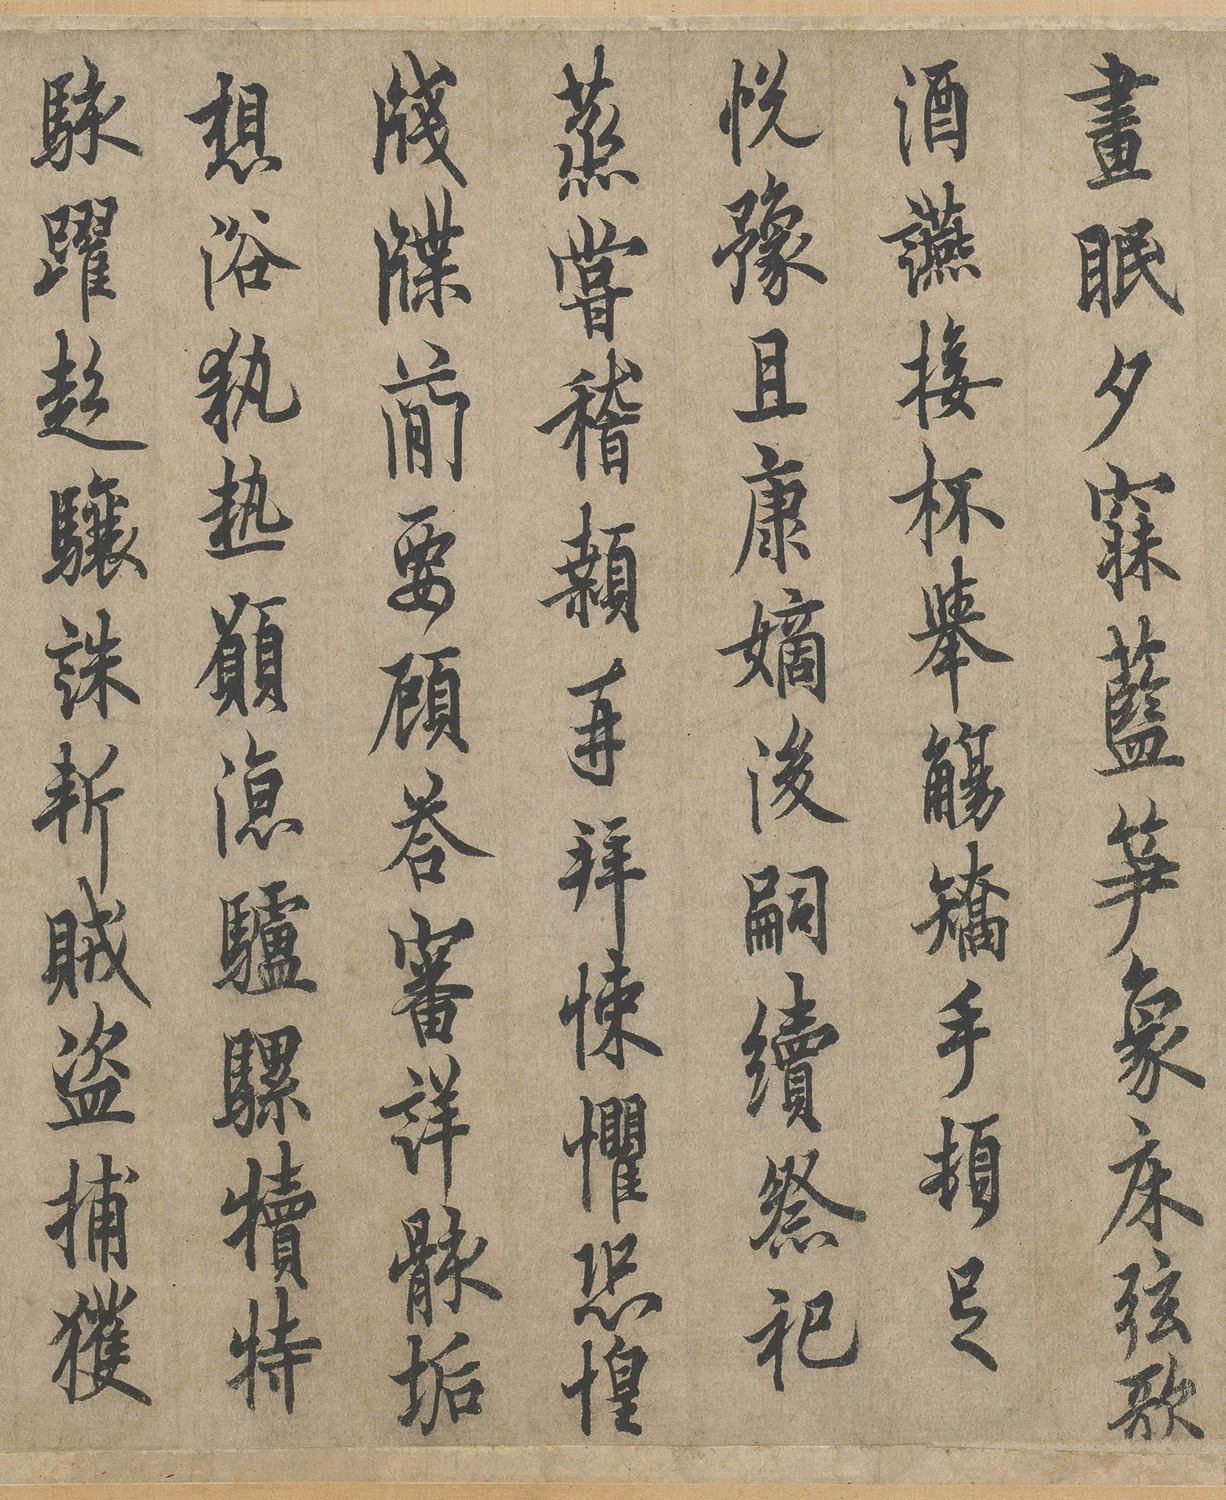 晝眠夕寐藍笋象床弦歌
酒讌接杯舉觴矯手頓足
悅豫且康嫡後嗣續祭祀
蒸嘗稽顙再拜悚懼恐惶
牋牒簡要顧答審詳骸垢
想浴執熱願涼驢騾犢特
駭躍超驤誅斬賊盜捕獲